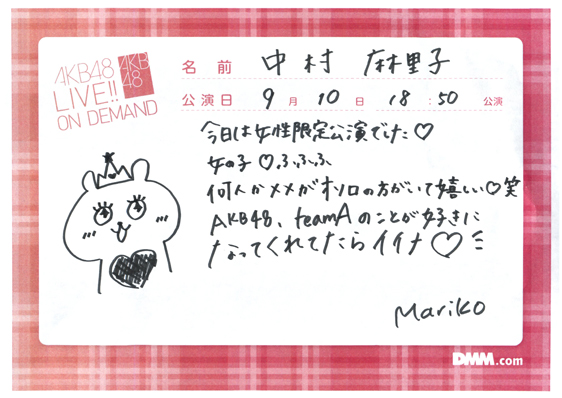 AKB48
LIVE!!
ON DEMAND
AKB
48
名前 中村 麻里子
公演日 9月10日 18:50公演
今日は女性限定公演でした♡
女の子♡ふふふ
何人かメメがオソロの方がいて嬉しい♡笑
AKB48、teamAのことが好きに
なってくれてたらイイナ♡
Mariko
DMM.com